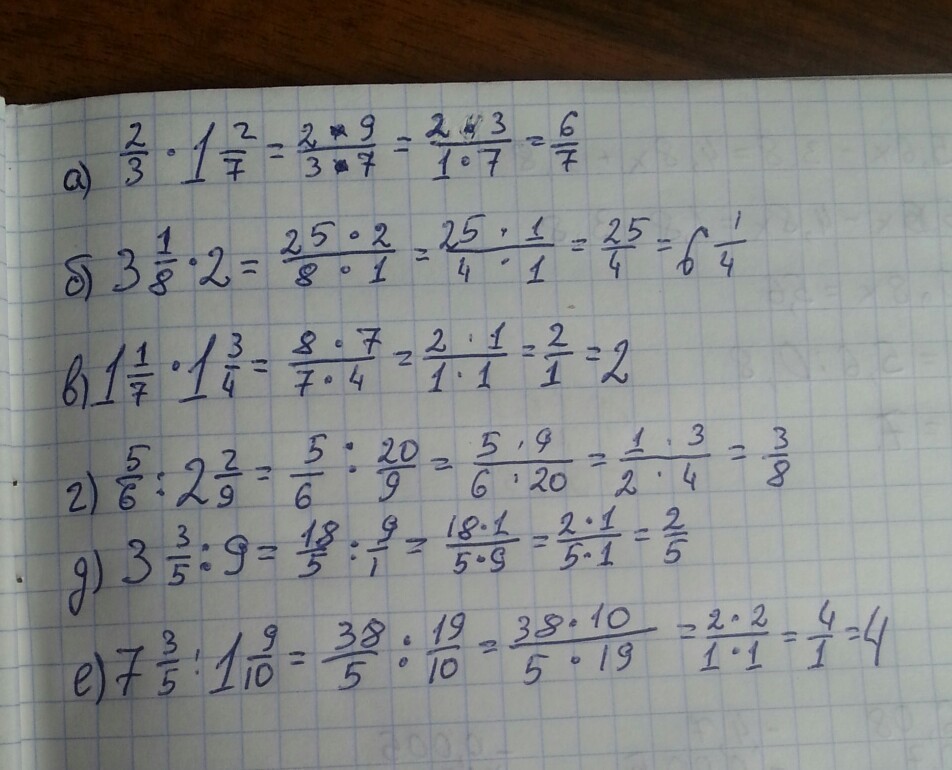 а) 2/3 · 1 2/7 = 2·9/3·7 = 2·3/1·7 = 6/7
б) 3 1/8 · 2 = 25·2/8·1 = 25·1/4·1 = 25/4 = 6 1/4
в) 1 1/7 · 1 3/4 = 8·7/7·4 = 2·1/1·1 = 2/1 = 2
г) 5/6 : 2 2/9 = 5/6 : 20/9 = 5·9/6·20 = 1·3/2·4 = 3/8
д) 3 3/5 : 9 = 18/5 : 9/1 = 18·1/5·9 = 2·1/5·1 = 2/5
е) 7 3/5 : 1 9/10 = 38/5 : 19/10 = 38·10/5·19 = 2·2/1·1 = 4/1 = 4